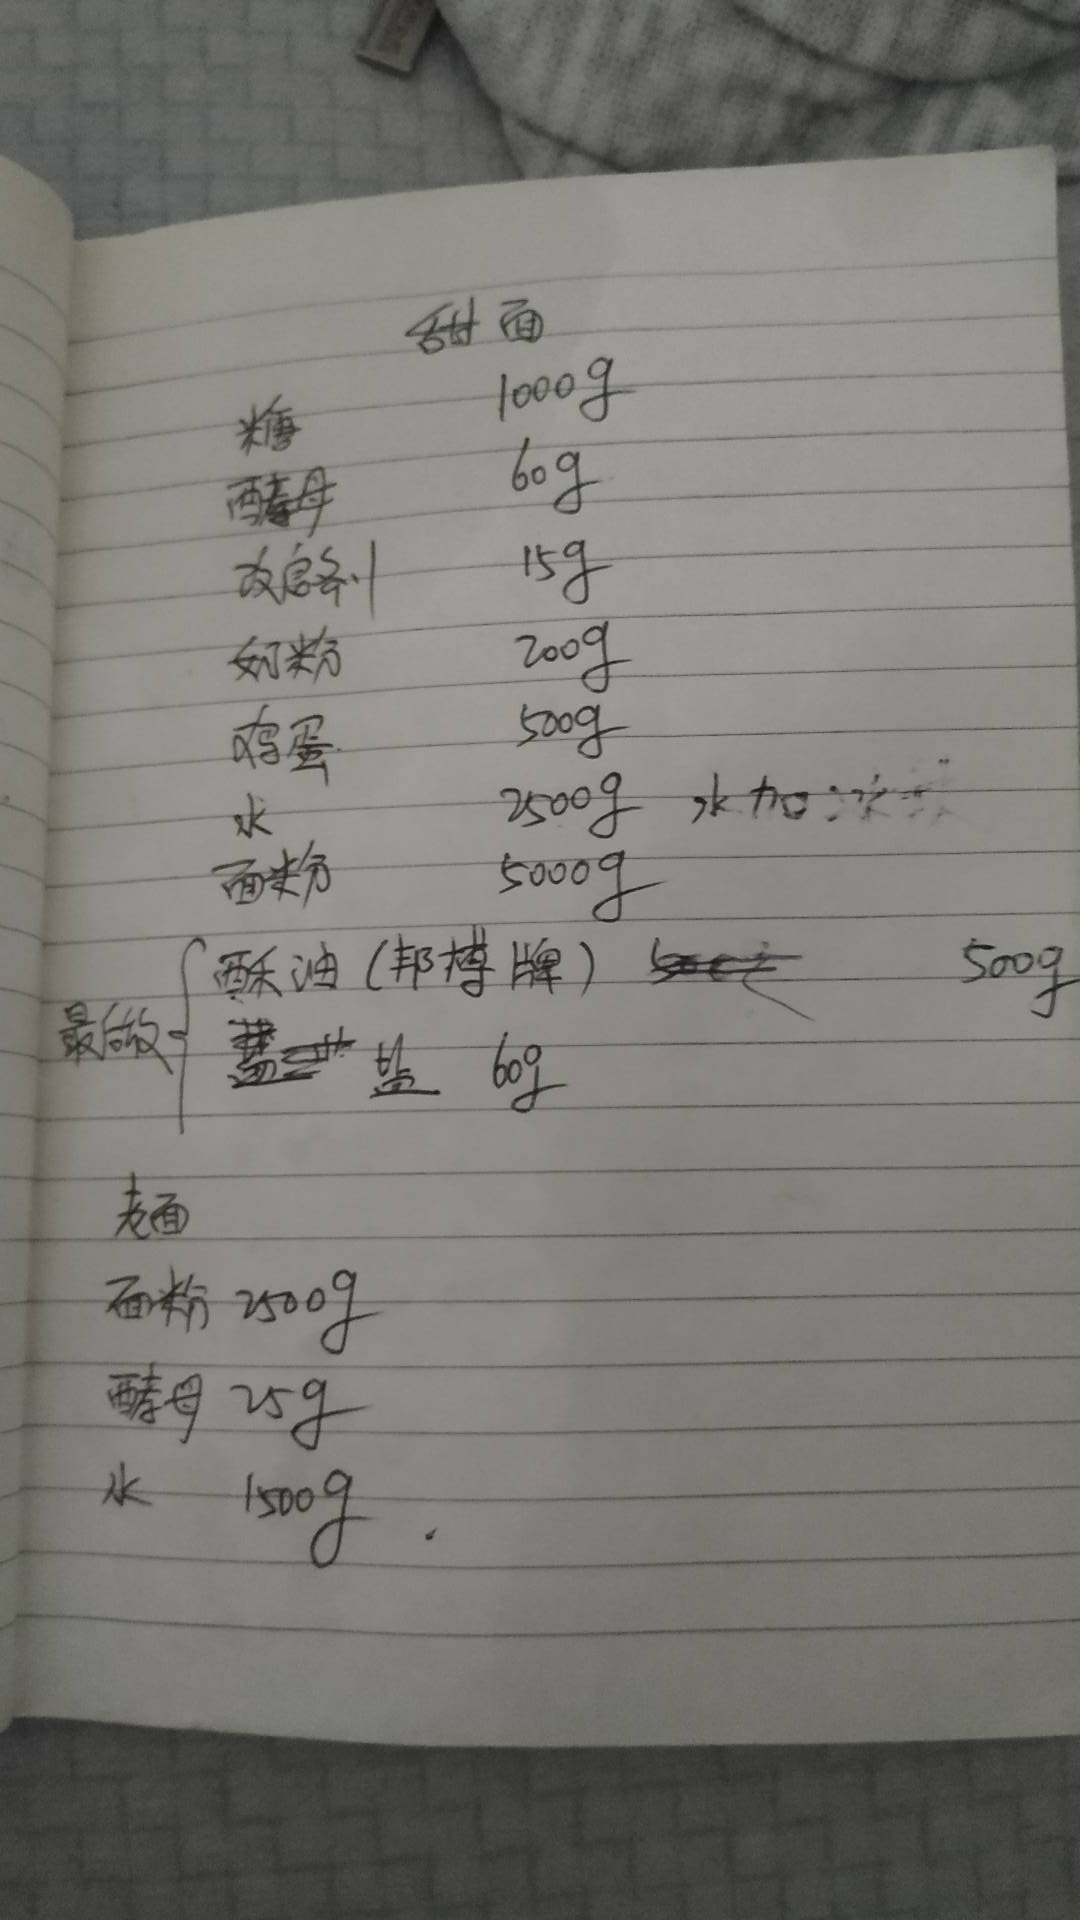 甜面
糖 1000g
酵母 60g
改良剂 15g
奶粉 200g
鸡蛋 500g
水 2500g 水加冰
面粉 5000g
最后放 酥油(邦搏牌) 500g
盐 60g
老面
面粉 2500g
酵母 25g
水 1500g